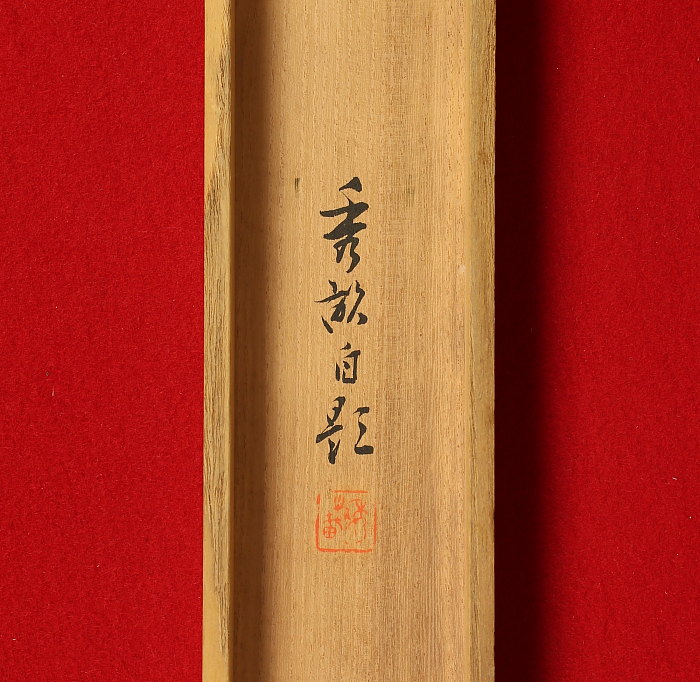 秀畝自題